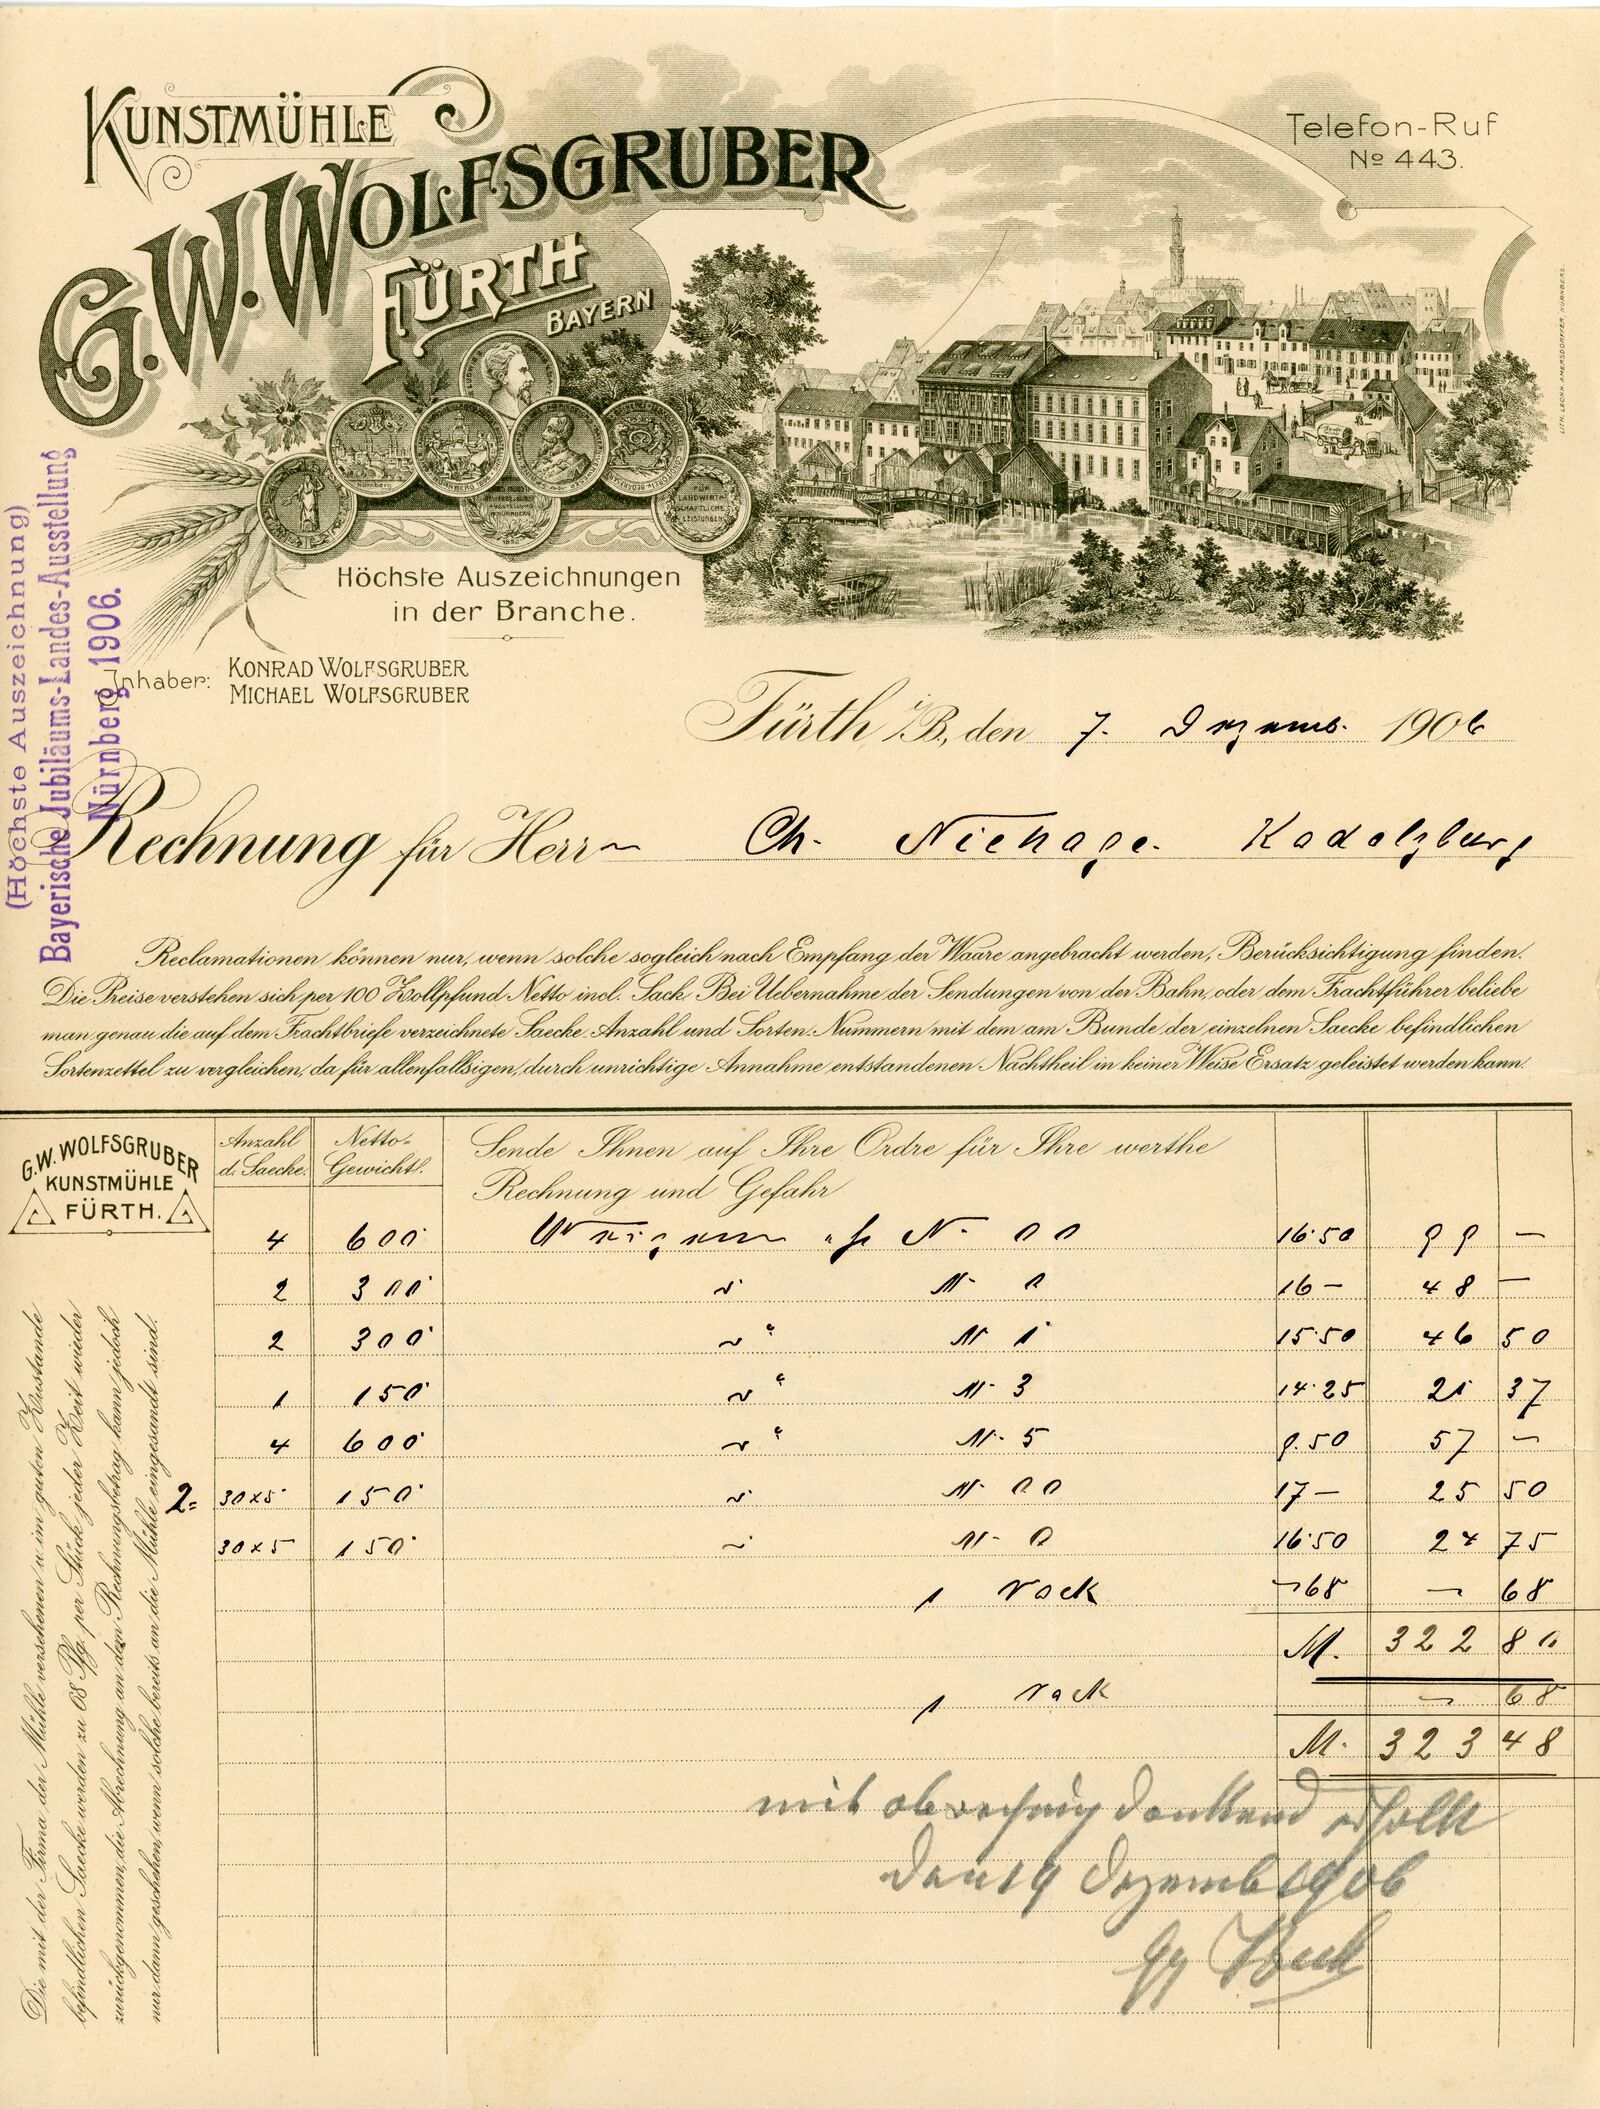 KUNSTMÜHLE
G. W. WOLFSGRUBER
FÜRTH
BAYERN
Telefon-Ruf
No 443.
LITH. LEONH. AMERSDORFFER, NÜRNBERG.
FÜR
LANDWIRTH
SCHAFTLICHE
LEISTUNGEN
Höchste Auszeichnungen
in der Branche.
(Höchste Auszeichnung)
Bayerische Jubiläums-Landes-Ausstellung
Nürnberg 1906.
Inhaber: KONRAD WOLFSGRUBER
MICHAEL WOLFSGRUBER
Fürth i/B, den 7. Dezemb. 1906
Rechnung für Herrn Ch. Kadolzburg
Reclamationen können nur, wenn solche sogleich nach Empfang der Waare angebracht werden, Berücksichtigung finden.
Die Preise verstehen sich per 100 Zollpfund Netto incl. Sack. Bei Uebernahme der Sendungen von der Bahn, oder dem Frachtführer beliebe
man genau die auf dem Frachtbriefe verzeichnete Saecke-Anzahl und Sorten-Nummern mit dem am Bunde der einzelnen Saecke befindlichen
Sortenzettel zu vergleichen, da für allenfallsigen, durch unrichtige Annahme entstandenen Nachtheil in keiner Weise Ersatz geleistet werden kann.
G. W. WOLFSGRUBER
KUNSTMÜHLE
FÜRTH.
Anzahl d. Saecke. Netto-Gewicht. Sende Ihnen auf Ihre Ordre für Ihre werthe
Rechnung und Gefahr
4 600 N. 00 16.50 99 —
2 300 " N. 0 16 — 48 —
2 300 " N. 1 15.50 46 50
1 150 " N. 3 14.25 21 37
4 600 " N. 5 9.50 57 —
2= 30x5 150 " N. 00 17 — 25 50
30x5 150 " N. 0 16.50 24 75
1 Sack — 68 — 68
M. 322 80
1 Sack — 68
M. 323 48
mit dankend erhalten
den 19 Dezemb 1906
Die mit der Firma der Mühle versehenen u. im guten Zustande
befindlichen Saecke werden zu 68 Pfg. per Stück jeder Zeit wieder
zurückgenommen, die Abrechnung an dem Rechnungsbetrag kann jedoch
nur dann geschehen, wenn solche bereits an die Mühle eingesandt sind.